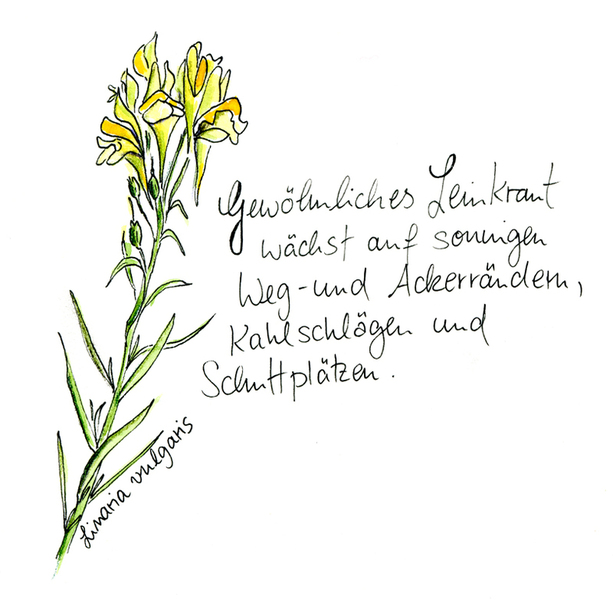 Gewöhnliches Leinkraut
wächst auf sonnigen
Weg- und Ackerrändern,
Kahlschlägen und
Schuttplätzen.
Linaria vulgaris